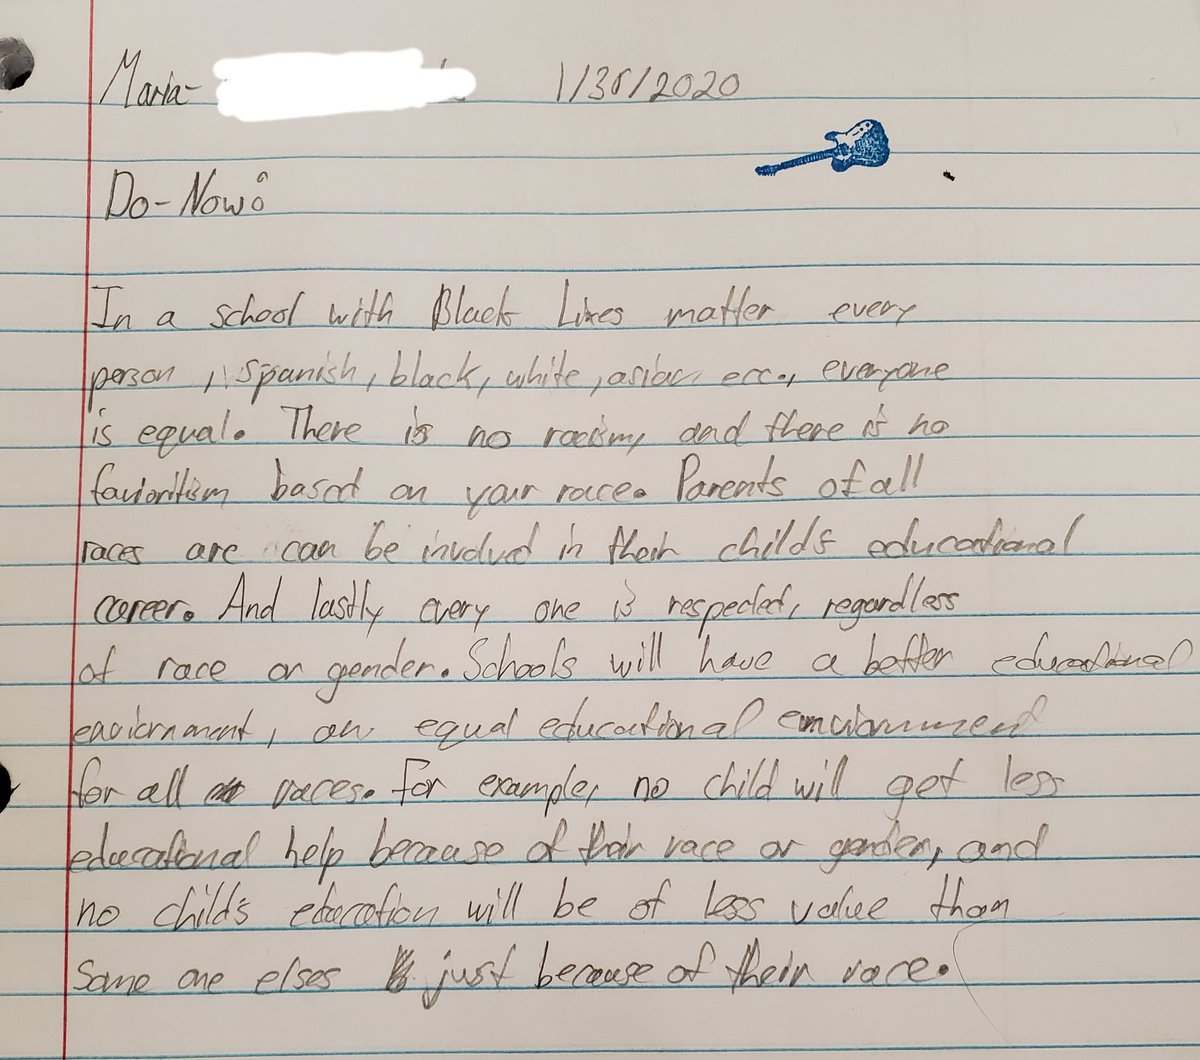 Maria- 1/30/2020
Do-Now:
In a school with Black Lives matter every
person, spanish, black, white, asian ecc., everyone
is equal. There is no racism, and there is no
favioritism based on your race. Parents of all
races are can be involved in their child's educational
career. And lastly every one is respected, regardless
of race or gender. Schools will have a better educational
enviornment, an equal educational
for all races. For example, no child will get less
educational help because of their race or gender, and
no child's education will be of less value than
some one elses just because of their race.